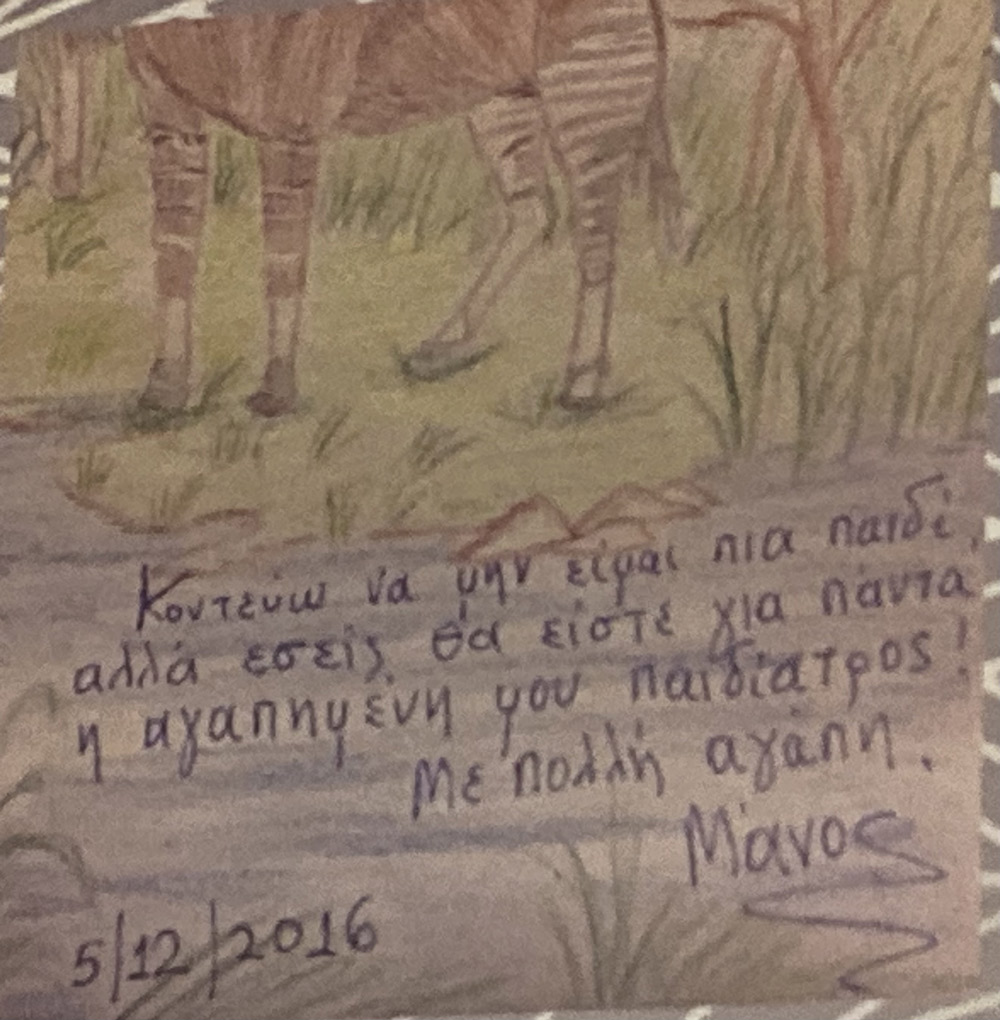 Κοντεύω να μην είμαι πια παιδί,
αλλά εσείς θα είστε για πάντα
η αγαπημένη μου παιδίατρος!
Με πολλή αγάπη.
Μάνος
5/12/2016